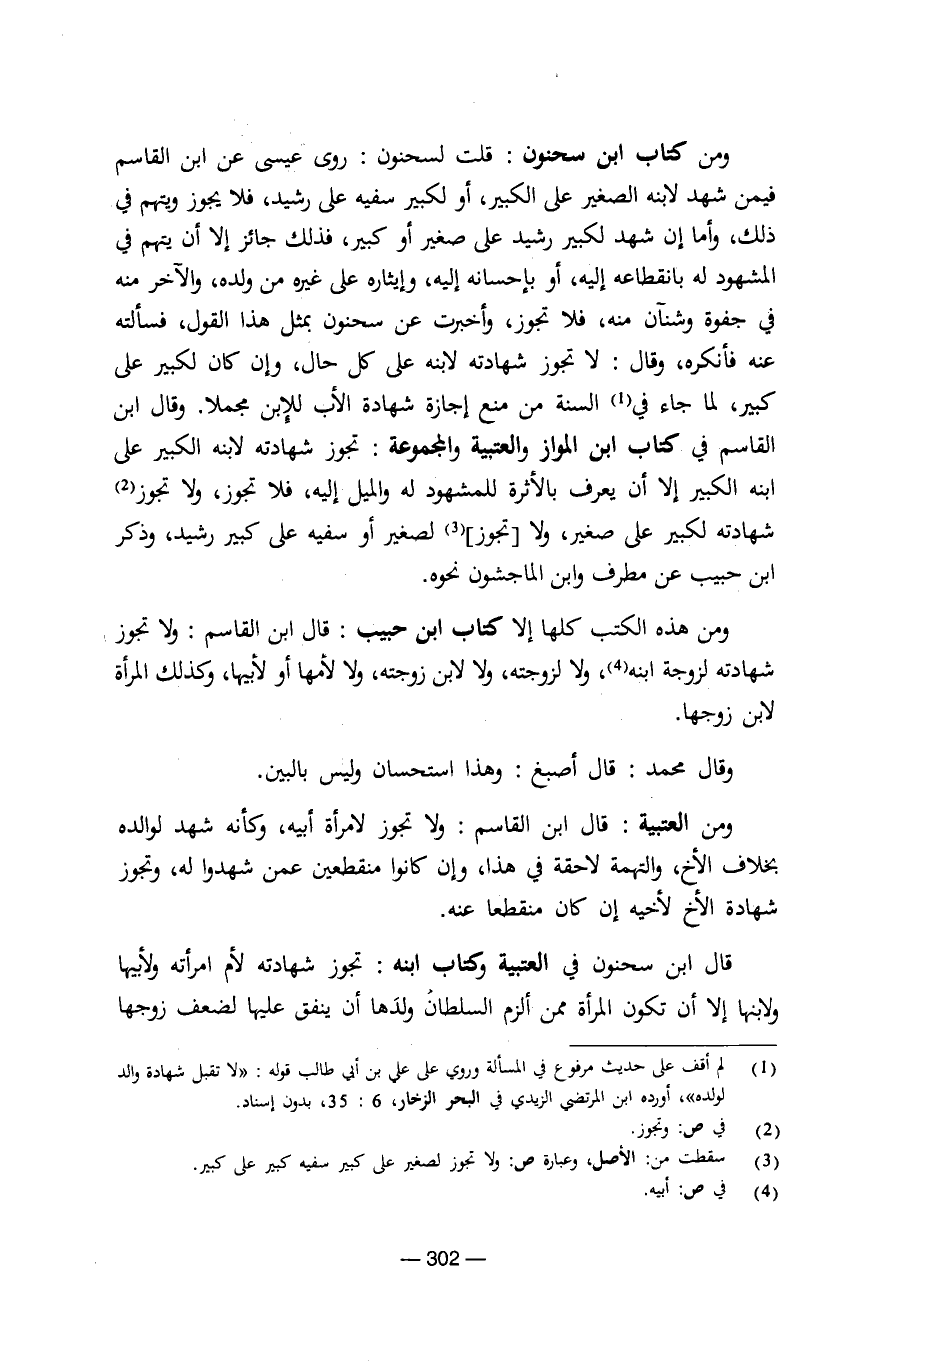 ومن كتاب ابن سحنون : قلت لسحنون : روى عيسى عن ابن القاسم
فيمن شهد لابنه الصغير على الكبير، أو لكبير سفيه على رشيد، فلا يجوز ويتهم في
ذلك، وأما إن شهد لكبير رشيد على صغير أو كبير، فذلك جائز إلا أن يتهم في
المشهود له بانقطاعه إليه، أو بإحسانه إليه، وإيثاره على غيره من ولده، والآخر منه
في جفوة وشنآن منه، فلا تجوز، وأخبرت عن سحنون بمثل هذا القول، فسألته
عنه فأنكره، وقال : لا تجوز شهادته لابنه على كل حال، وإن كان لكبير على
كبير، لما جاء في(1) السنة من منع إجازة شهادة الأب للإبن مجملا. وقال ابن
القاسم في كتاب ابن المواز والعتبية والمجموعة : تجوز شهادته لابنه الكبير على
ابنه الكبير إلا أن يعرف بالأثرة للمشهود له والميل إليه، فلا تجوز، ولا تجوز(2)
شهادته لكبير على صغير، ولا [تجوز](3) لصغير أو سفيه على كبير رشيد، وذكر
ابن حبيب عن مطرف وابن الماجشون نحوه.
ومن هذه الكتب كلها إلا كتاب ابن حبيب : قال ابن القاسم : ولا تجوز
شهادته لزوجة ابنه(4)، ولا لزوجته، ولا لابن زوجته، ولا لأمها أو لأبيها، وكذلك المرأة
لابن زوجها.
وقال محمد : قال أصبغ : وهذا استحسان وليس بالبين.
ومن العتبية : قال ابن القاسم : ولا تجوز لامرأة أبيه، وكأنه شهد لوالده
بخلاف الأخ، والتهمة لاحقة في هذا، وإن كانوا منقطعين عمن شهدوا له، وتجوز
شهادة الأخ لأخيه إن كان منقطعا عنه.
قال ابن سحنون في العتبية وكتاب ابنه : تجوز شهادته لأم امرأته ولأبيها
ولابنها إلا أن تكون المرأة ممن ألزم السلطانُ ولدَها أن ينفق عليها لضعف زوجها
(1) لم أقف على حديث مرفوع في المسألة وروي على علي بن أبي طالب قوله : «لا تقبل شهادة والد
لولده»، أورده ابن المرتضي الزيدي في البحر الزخار، 6 : 35، بدون إسناد.
(2) في ص: وتجوز.
(3) سقطت من: الأصل، وعبارة ص: ولا تجوز لصغير على كبير سفيه كبير على كبير.
(4) في ص: أبيه.
— 302 —